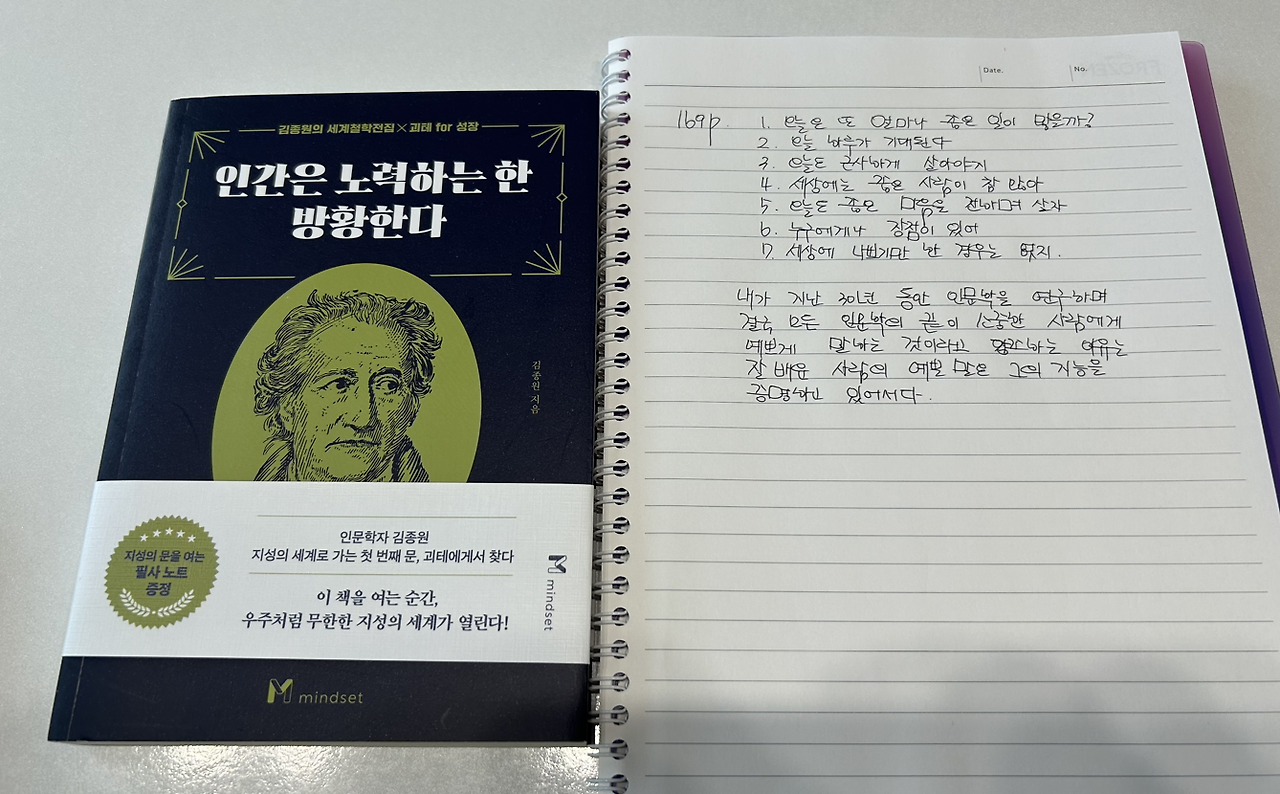 김종원의 세계철학전집×괴테 for 성장
인간은 노력하는 한
방황한다
김종원 지음
지성의 문을 여는
필사 노트
증정
인문학자 김종원
지성의 세계로 가는 첫 번째 문, 괴테에게서 찾다
이 책을 여는 순간,
우주처럼 무한한 지성의 세계가 열린다!
mindset
mindset
Date.
No.
169p. 1. 오늘은 또 얼마나 좋은 일이 많을까?
2. 오늘 하루가 기대된다
3. 오늘도 근사하게 살아야지
4. 세상에는 좋은 사람이 참 많아
5. 오늘도 좋은 마음을 전하며 살자
6. 누구에게나 장점이 있어
7. 세상에 나쁘기만 한 경우는 없지.
내가 지난 30년 동안 인문학을 연구하며
결국 모든 인문학의 끝이 소중한 사람에게
예쁘게 말하는 것이라고 하는 이유는
잘 배운 사람의 예쁜 말은 그의 지능을
증명하고 있어서다.